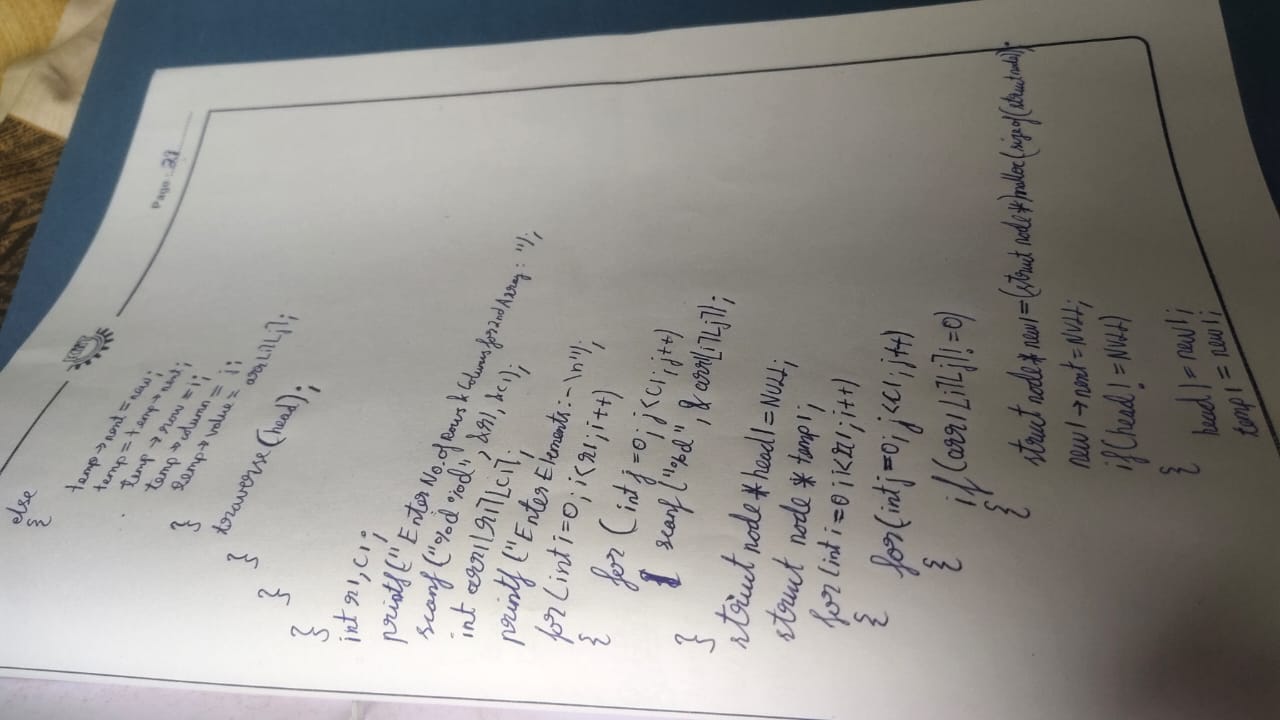 Page: 29
else
{
temp→next=new;
temp=temp→next;
temp→row=i;
temp→column=j;
temp→value=arr[i][j];
}
traverse(head);
}
}
}
int r1,c1;
printf("Enter No. of Rows & Columns for 2nd Array: ");
scanf("%d %d", &r1, &c1);
int arr1[r1][c1];
printf("Enter Elements:-\n");
for(int i=0; i<r1; i++)
{
for(int j=0; j<c1; j++)
scanf("%d", &arr1[i][j]);
}
struct node *head1=NULL;
struct node *temp1;
for(int i=0; i<r1; i++)
{
for(int j=0; j<c1; j++)
{
if(arr1[i][j]!=0)
{
struct node* new1=(struct node*)malloc(sizeof(struct node));
new1→next=NULL;
if(head!=NULL)
{
head1=new1;
temp1=new1;